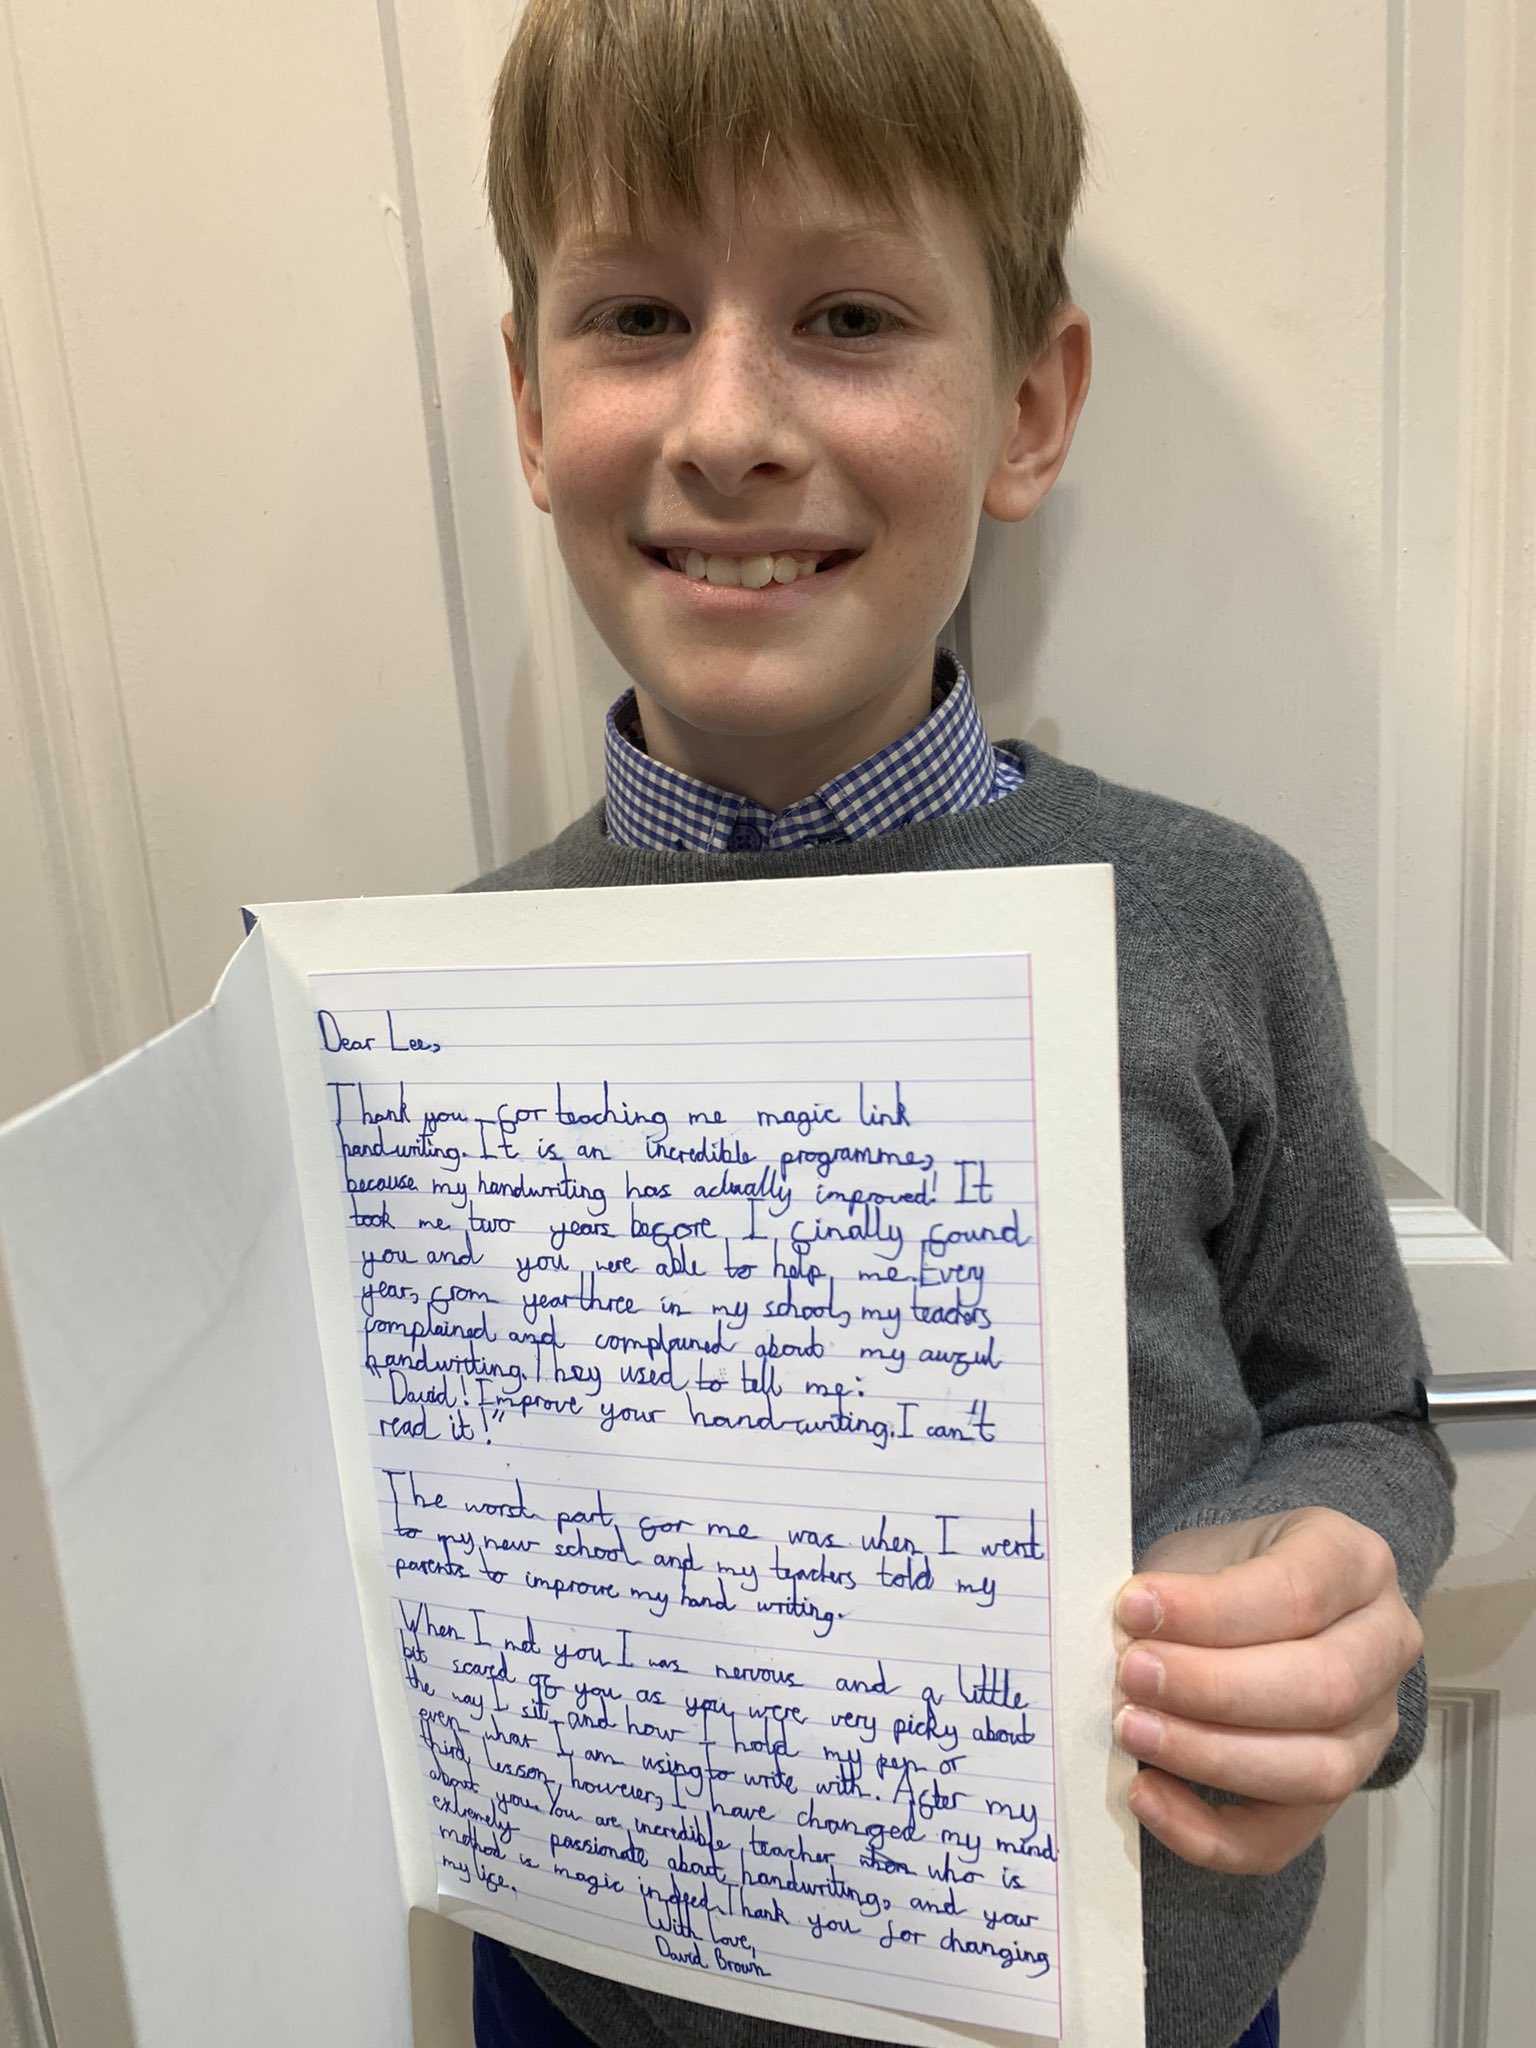 Dear Lee,
Thank you for teaching me magic link
handwriting. It is an incredible programme,
because my handwriting has actually improved! It
took me two years before I finally found
you and you were able to help me. Every
year, from year three in my school, my teachers
complained and complained about my awful
handwriting. They used to tell me:
"David! Improve your handwriting. I can't
read it!"
The worst part for me was when I went
to my new school and my teachers told my
parents to improve my hand writing.
When I met you I was nervous and a little
bit scared of you as you were very picky about
the way I sit and how I hold my pen or
even what I am using to write with. After my
third lesson, however, I have changed my mind
about you. You are incredible teacher who is
extremely passionate about handwriting, and your
method is magic indeed. Thank you for changing
my life.
With love,
David Brown